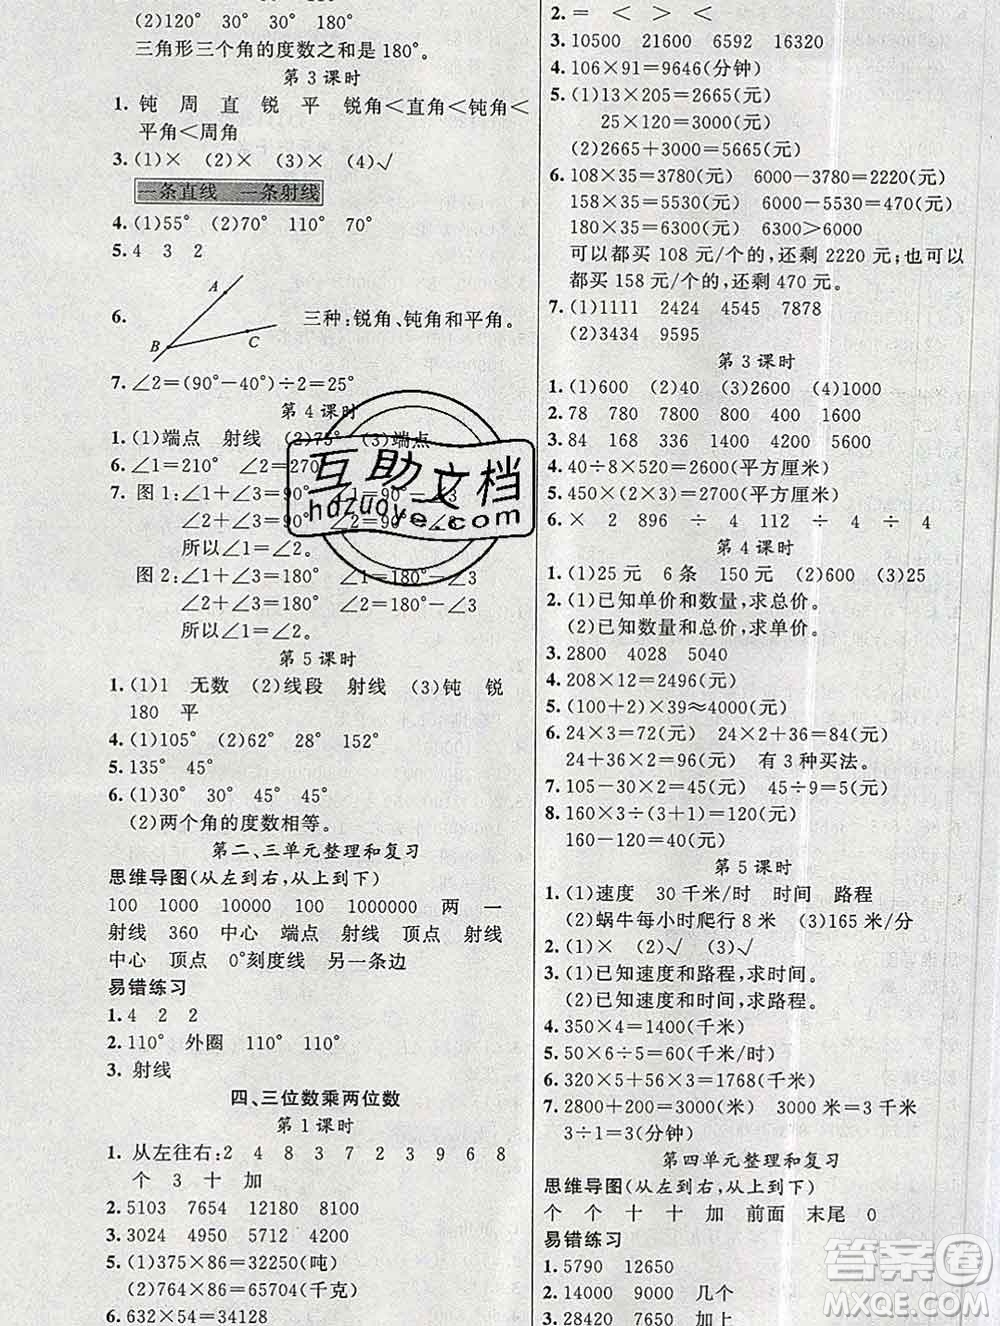 (2)120° 30° 30° 180°
三角形三个角的度数之和是180°。
第3课时
1. 钝 周 直 锐 平 锐角<直角<钝角<
平角<周角
3. (1)× (2)× (3)× (4)√
一条直线 一条射线
4. (1)55° (2)70° 110° 70°
5. 4 3 2
6. A B C 三种:锐角、钝角和平角。
7. ∠2=(90°-40°)÷2=25°
第4课时
1. (1)端点 射线 (2)75° (3)端点
6. ∠1=210° ∠2=270°
7. 图1:∠1+∠3=90° ∠1=90°-∠3
∠2+∠3=90° ∠2=90°-∠3
所以∠1=∠2。
图2:∠1+∠3=180° ∠1=180°-∠3
∠2+∠3=180° ∠2=180°-∠3
所以∠1=∠2。
第5课时
1. (1)1 无数 (2)线段 射线 (3)钝 锐
180 平
4. (1)105° (2)62° 28° 152°
5. 135° 45°
6. (1)30° 30° 45° 45°
(2)两个角的度数相等。
第二、三单元整理和复习
思维导图(从左到右,从上到下)
100 1000 10000 100 1000000 两 一
射线 360 中心 端点 射线 顶点 射线
中心 顶点 0°刻度线 另一条边
易错练习
1. 4 2 2
2. 110° 外圈 110° 110°
3. 射线
四、三位数乘两位数
第1课时
1. 从左往右:2 4 8 3 7 2 3 9 6 8
个 3 十 加
2. 5103 7654 12180 8100
3. 3024 4950 5712 4200
5. (1)375×86=32250(吨)
(2)764×86=65704(千克)
6. 632×54=34128
2. = < > <
3. 10500 21600 6592 16320
4. 106×91=9646(分钟)
5. (1)13×205=2665(元)
25×120=3000(元)
(2)2665+3000=5665(元)
6. 108×35=3780(元) 6000-3780=2220(元)
158×35=5530(元) 6000-5530=470(元)
180×35=6300(元) 6300>6000
可以都买108元/个的,还剩2220元;也可以
都买158元/个的,还剩470元。
7. (1)1111 2424 4545 7878
(2)3434 9595
第3课时
1. (1)600 (2)40 (3)2600 (4)1000
2. 78 780 7800 800 400 1600
3. 84 168 336 1400 1400 1400
4. 40÷8×520=2600(平方厘米)
5. 450×(2×3)=2700(平方厘米)
6. × 2 896 ÷ 4 112 ÷ 4 ÷ 4
第4课时
1. (1)25元 6条 150元 (2)600 (3)25
2. (1)已知单价和数量,求总价。
(2)已知数量和总价,求单价。
3. 2800 4028 5040
4. 208×12=2496(元)
5. (100+2)×39≈4000(元)
6. 24×3=72(元) 24×2+36=84(元)
24+36×2=96(元) 有3种买法。
7. 105-30×2=45(元) 45÷9=5(元)
8. 160×3÷(3+1)=120(元)
160-120=40(元)
第5课时
1. (1)速度 30千米/时 时间 路程
(2)蜗牛每小时爬行8米 (3)165米/分
2. (1)× (2)√ (3)√
3. (1)已知速度和路程,求时间。
(2)已知速度和时间,求路程。
4. 350×4=1400(千米)
5. 50×6÷5=60(千米/时)
6. 320×5+56×3=1768(千米)
7. 2800+200=3000(米) 3000米=3千米
3÷1=3(分钟)
第四单元整理和复习
思维导图(从左到右,从上到下)
个 个 十 十 加 前面 末尾 0
易错练习
1. 5790 12650
2. 14000 9000 几个
3. 28420 7650 加上
互助文档
hdzuoye.com
答案圈
MXQE.COM